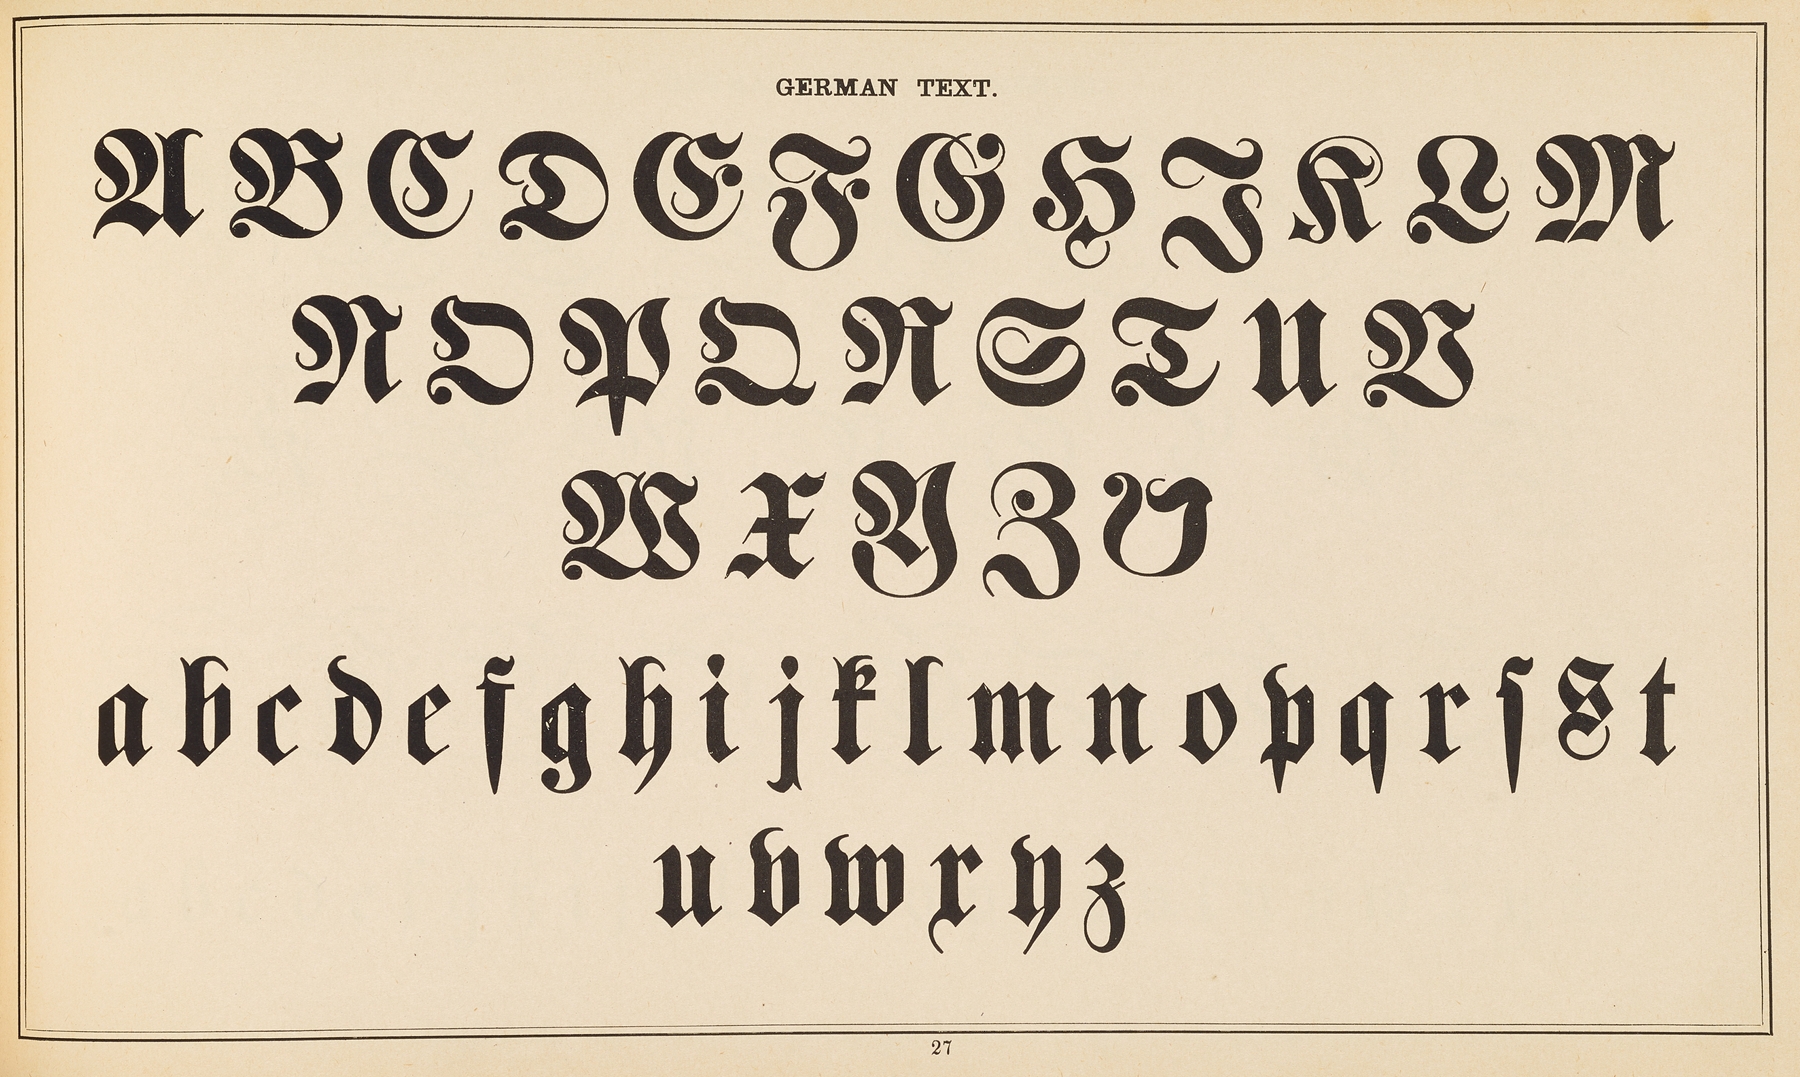 GERMAN TEXT.
A B C D E F G H J K L M
N O P Q R S T U V
W X Y Z U
a b c d e f g h i j k l m n o p q r ſ s t
u v w x y z
27